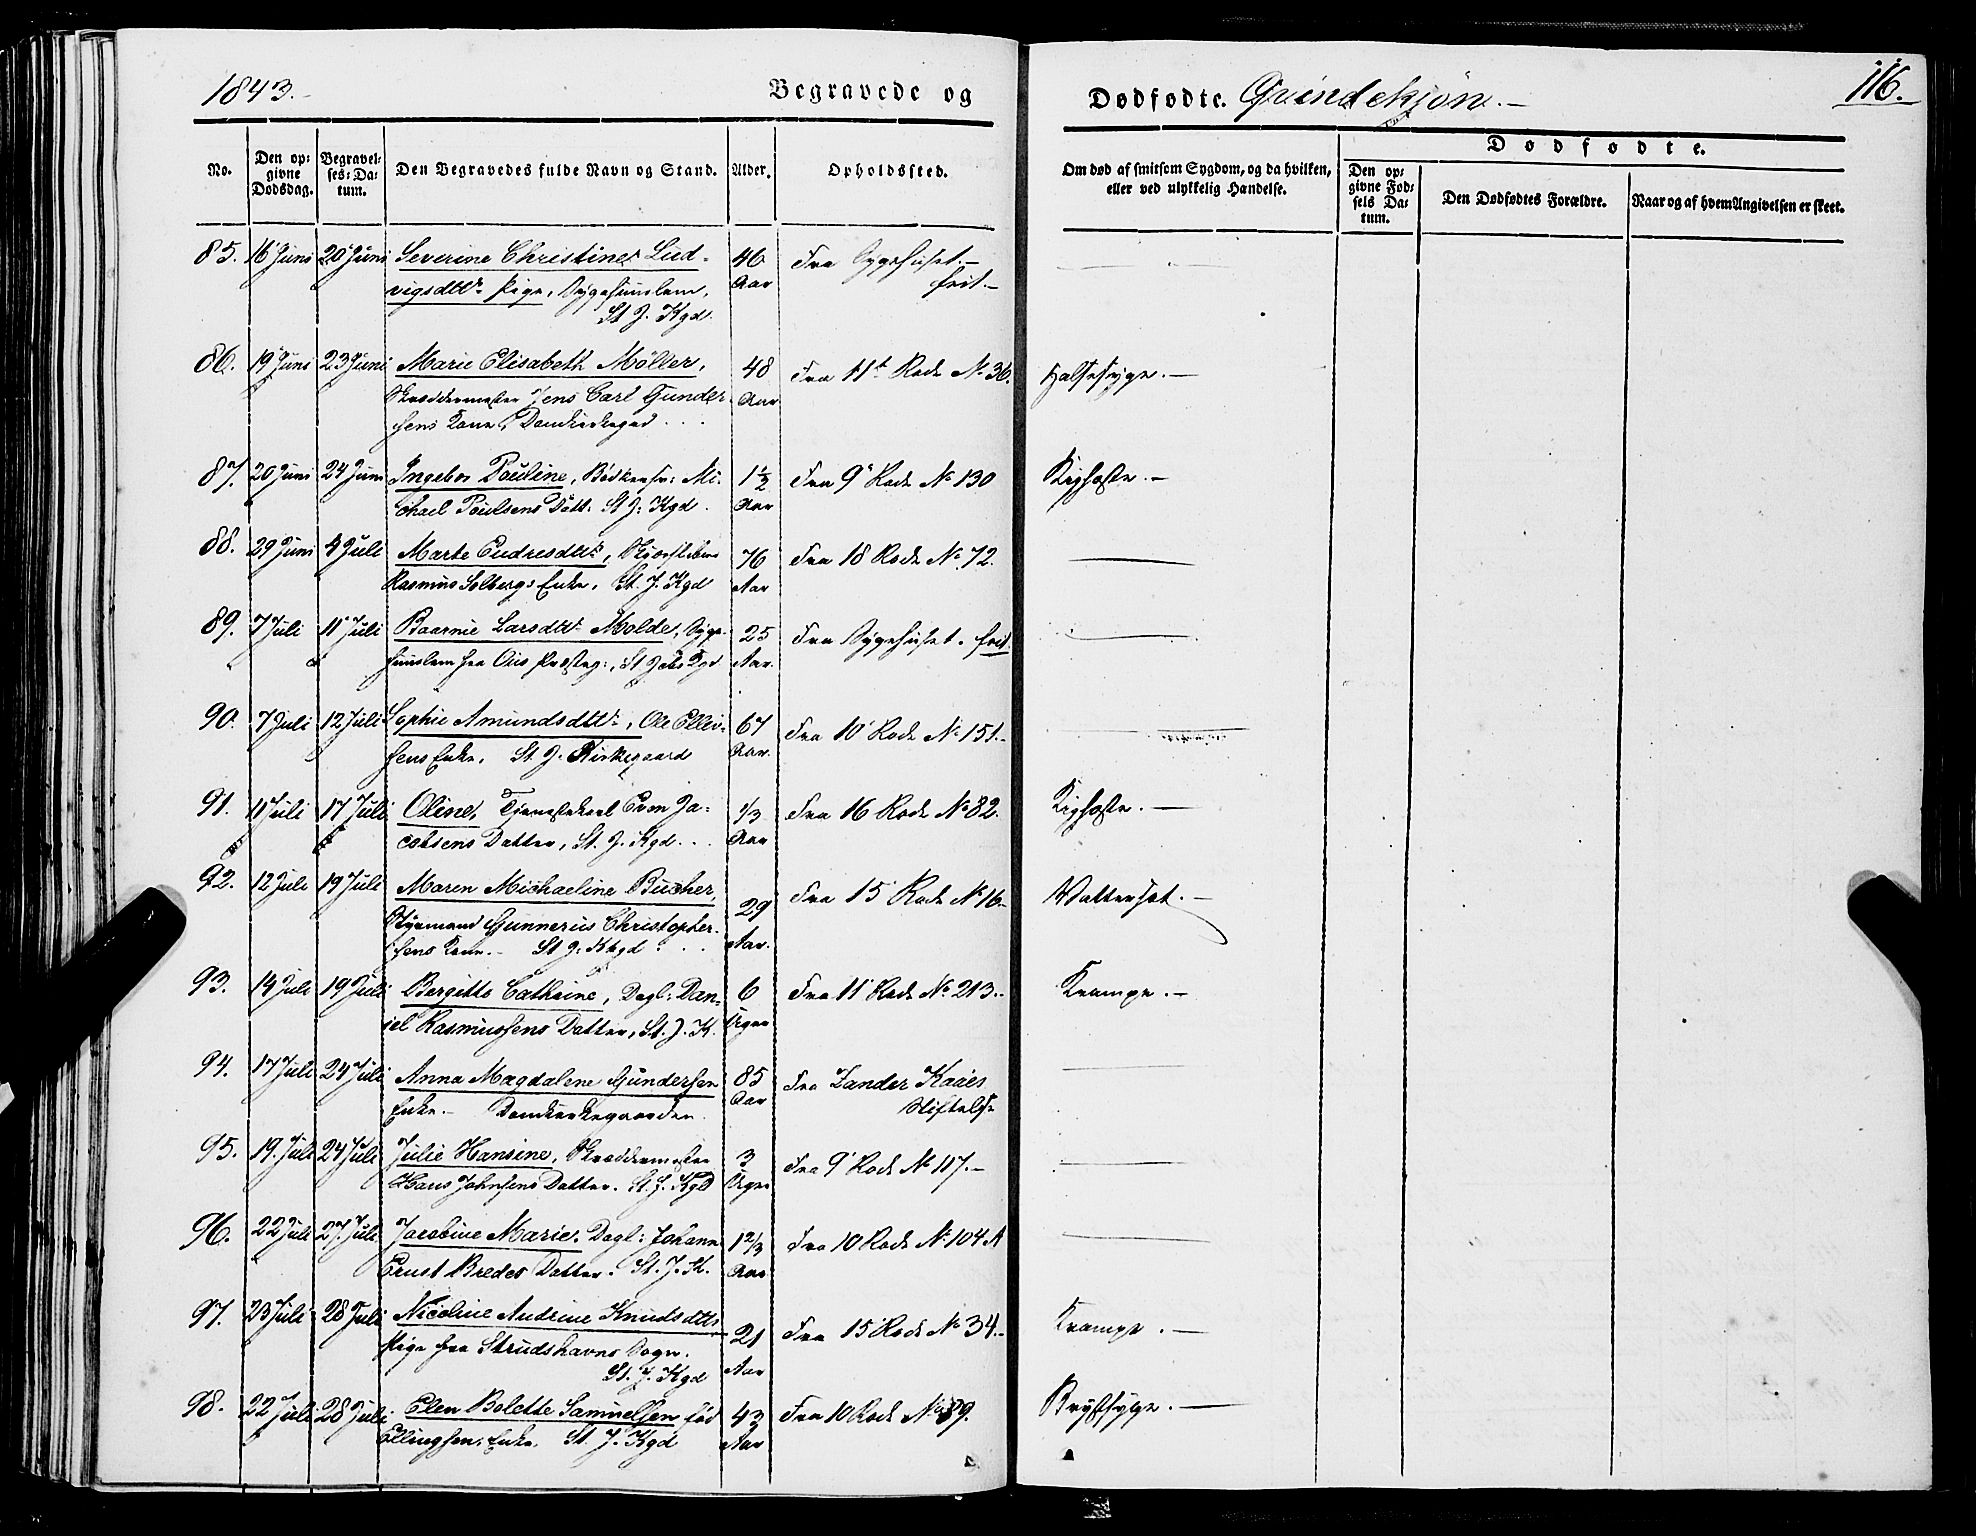 1843.
Begravede og
Dødfødte. Qvindekjøn.
116.
No.
Den opgivne Dødsdag.
Begravelses-Datum.
Den Begravedes fulde Navn og Stand.
Alder.
Opholdssted.
Om død af smitsom Sygdom, og da hvilken,
eller ved ulykkelig Hændelse.
Dødfødte.
Den opgivne Fødsels Datum.
Den Dødfødtes Forældre.
Naar og af hvem Angivelsen er skeet.
85. 16 Juni 20 Juni Severine Christine Lud- 46 Fra Sygehuset.
vigsdttr. Pige, Sygehuuslem, Aar frit.
St J. Kgd.
86. 19 Juni 23 Juni Marie Elisabeth Möller, 48 Fra 11t Rode No 36. Halsesyge.
Skreddermester Jens Carl Gunder- Aar
sens Kone, Domkirkegrd
87. 20 Juni 24 Juni Ingebor Pouline, Bödkersv: Mi- 1½ Fra 9 Rode No 130 Kighoste.
chael Poulsens Datt. St J. Kgd. Aar
88. 29 Juni 4 Juli Marte Endresdttr, 76 Fra 18 Rode No 72.
Rasmus Solbergs Enke, St. J. Kgd Aar
89. 7 Juli 11 Juli Larsdttr Molde, Syge- 25 Fra Sygehuset. frit.
huuslem fra Præsteg:, St J Kgd Aar
90. 7 Juli 12 Juli Sophie Amundsdttr, Ole Ellev- 67 Fra 10 Rode No 151.
sens Enke. St J. Kirkegaard Aar.
91. 11 Juli 17 Juli Oline, Tjenestekarl Even Ja- 1/3 Fra 16 Rode No 82. Kighoste.
cobsens Datter, St. J. Kgd. Aar
92. 12 Juli 19 Juli Maren Michaeline Bucher, 29 Fra 15 Rode No 16. Vattersot.
Styrmand Gunnerius Christopher- Aar.
sens Kone. St J. Kkgd.
93. 14 Juli 19 Juli Bergitte Cathrine, Dagl: Dan- 6 Fra 11 Rode No 213. Krampe.
iel Rasmussens Datter, St. J. K. Uger
94. 17 Juli 24 Juli Anna Magdalene Gundersen 85 Fra Zander Kaaes
Enke. Domkirkegaarden. Aar Stiftelse
95. 19. Juli 24 Juli Julie Hansine, Skreddermester 3 Fra 9 Rode No 117.
Hans Johnsens Datter. St. J. Kgd Uger
96. 22 Juli 27. Juli Jacobine Marie. Dagl: Johann 1 2/3 Fra 10 Rode No 104 A
Ernst Bredes Datter. St. J. K. Aar
97. 23 Juli 28 Juli Nicoline Andrine Knudsdttr 21 Fra 15 Rode No 34. Krampe.
Pige fra Strudshavns Sogn. Aar
St. J. Kgd
98. 22 Juli 28 Juli Elen Bolette Samuelsen fød 43 Fra 10 Rode No 89. Brystsyge.
Ellingsen, Enke. St J. Kgd Aar